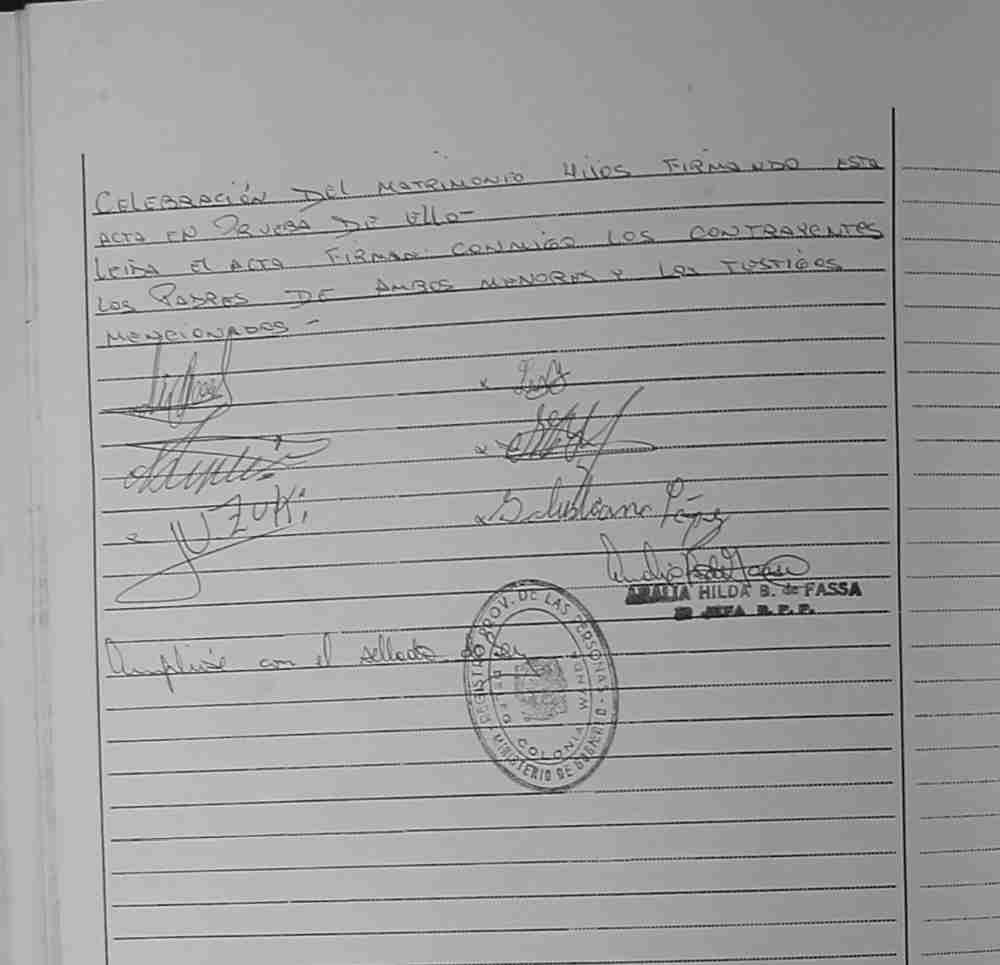 CELEBRACIÓN DEL MATRIMONIO HIJOS FIRMANDO ESTA
ACTA EN PRUEBA DE ELLO-
LEIDA EL ACTA FIRMAN CONMIGO LOS CONTRAYENTES
LOS PADRES DE AMBOS MENORES Y LOS TESTIGOS
MENCIONADOS-
x
x
x YU.ZUKi
x Salustiana López
ARALIA HILDA B. de FASSA
JEFA R. P. P.
con el sellado de ley
REGISTRO PROV. DE LAS PERSONAS - MINISTERIO DE GOBIERNO
COLONIA WANDA